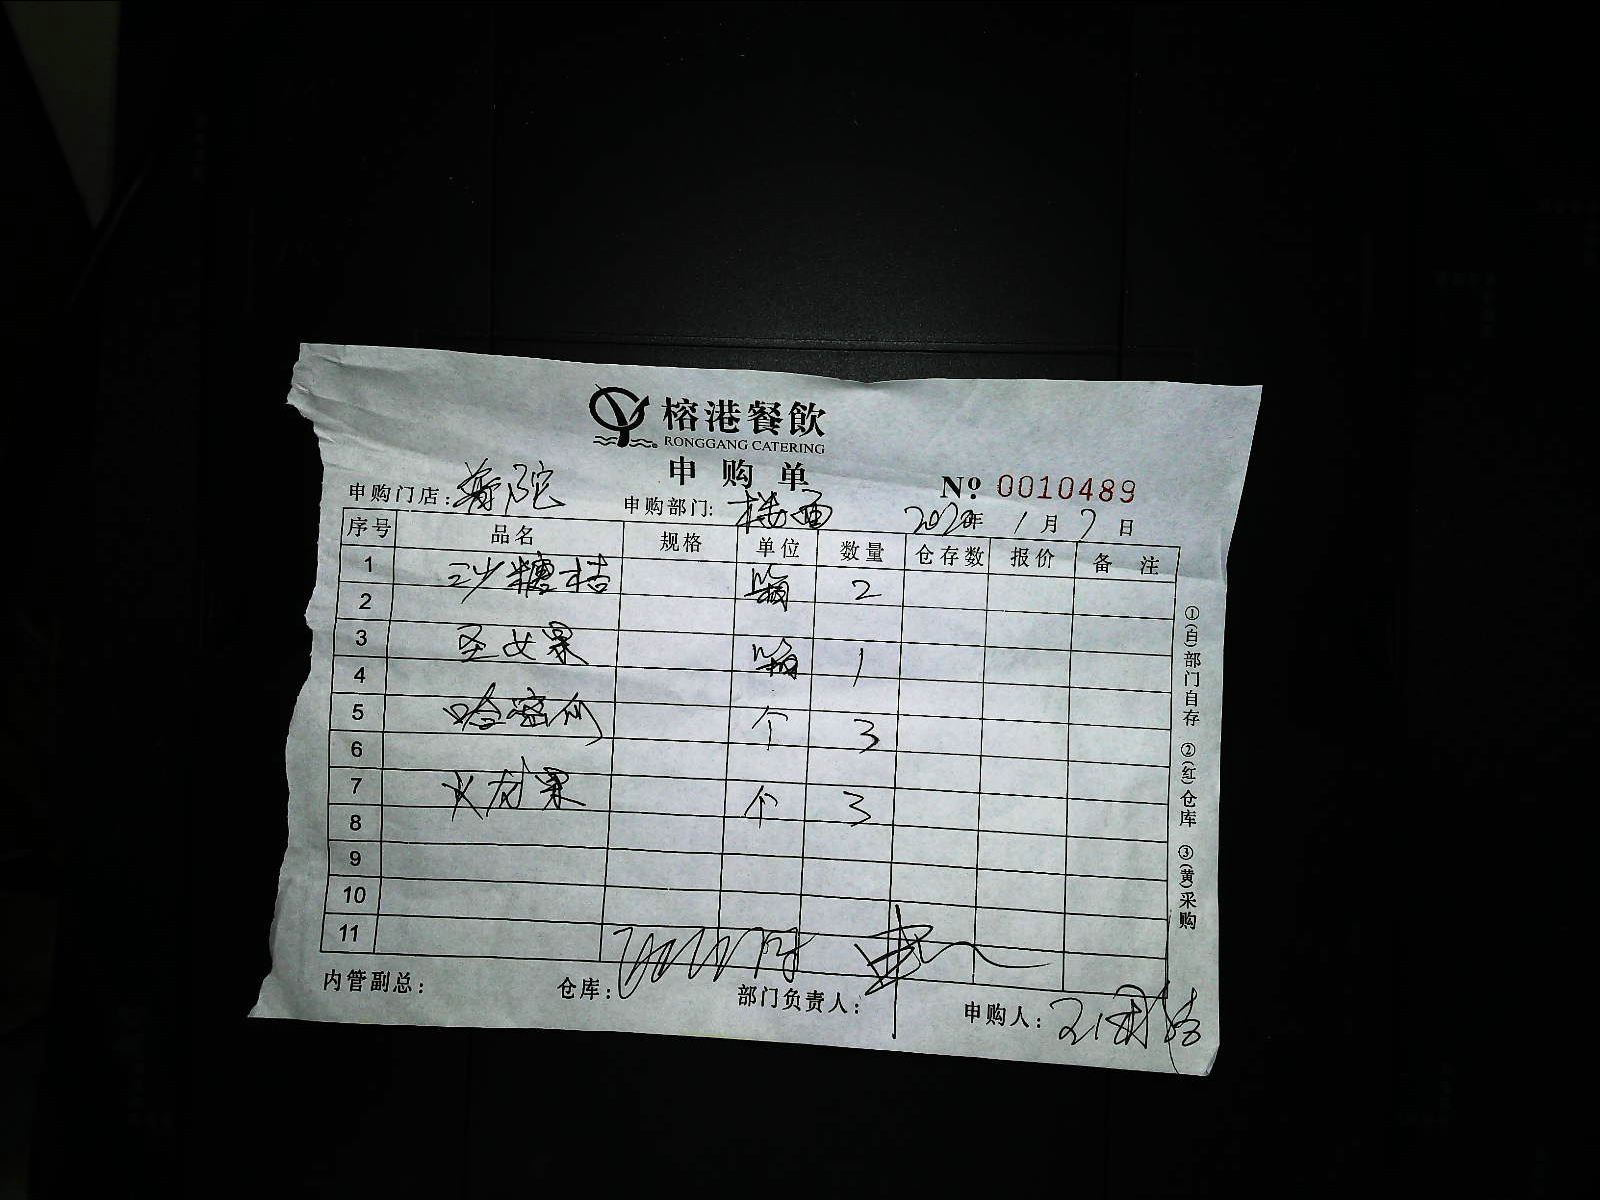 榕港餐飲
RONGGANG CATERING
申购单
No 0010489
申购门店: 普陀 申购部门: 楼面 2020年 1月 7日
序号 品名 规格 单位 数量 仓存数 报价 备 注
1 沙糖桔 箱 2
2
3 圣女果 箱 1
4
5 哈密瓜 个 3
6
7 火龙果 个 3
8
9
10
11
内管副总: 仓库: 部门负责人: 申购人:
①(白)部门自存 ②(红)仓库 ③(黄)采购